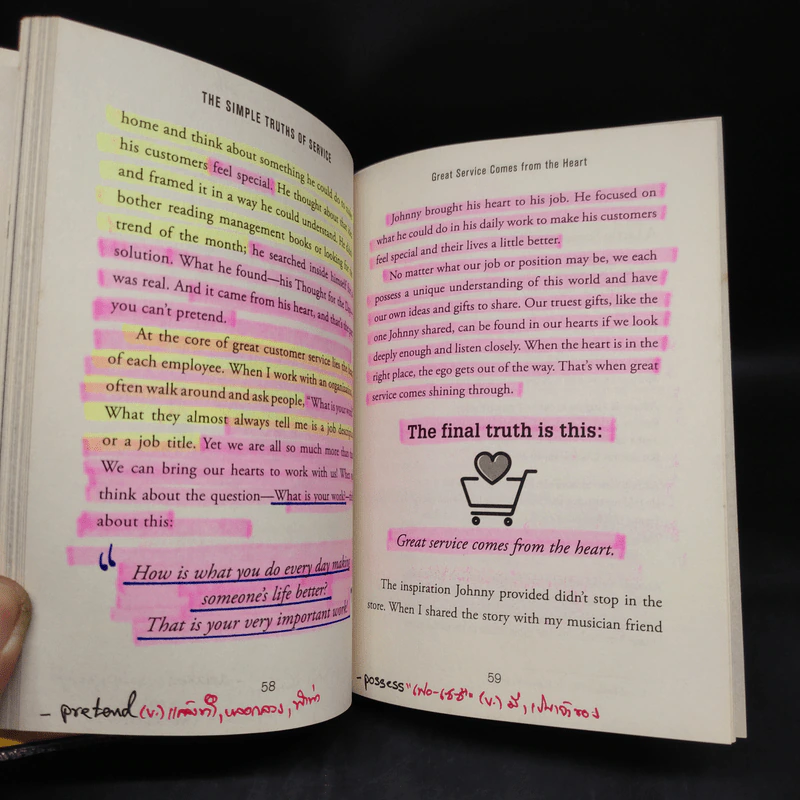 THE SIMPLE TRUTHS OF SERVICE
home and think about something he could do to
his customers feel special. He thought about that
and framed it in a way he could understand. He didn't
bother reading management books or looking for
trend of the month; he searched inside himself
solution. What he found—his Thought for the Day—
was real. And it came from his heart, and that's the
you can't pretend.
At the core of great customer service lies the
of each employee. When I work with an organization,
often walk around and ask people, "What is your work?"
What they almost always tell me is a job description
or a job title. Yet we are all so much more than
We can bring our hearts to work with us! When
think about the question—What is your work?—
about this:
“
How is what you do every day making
someone's life better?
That is your very important work!
58
- pretend (v.) แสร้งทำ, หลอกลวง,
Great Service Comes from the Heart
Johnny brought his heart to his job. He focused on
what he could do in his daily work to make his customers
feel special and their lives a little better.
No matter what our job or position may be, we each
possess a unique understanding of this world and have
our own ideas and gifts to share. Our truest gifts, like the
one Johnny shared, can be found in our hearts if we look
deeply enough and listen closely. When the heart is in the
right place, the ego gets out of the way. That's when great
service comes shining through.
The final truth is this:
Great service comes from the heart.
The inspiration Johnny provided didn't stop in the
store. When I shared the story with my musician friend
59
- possess (v.) มี, เป็นเจ้าของ